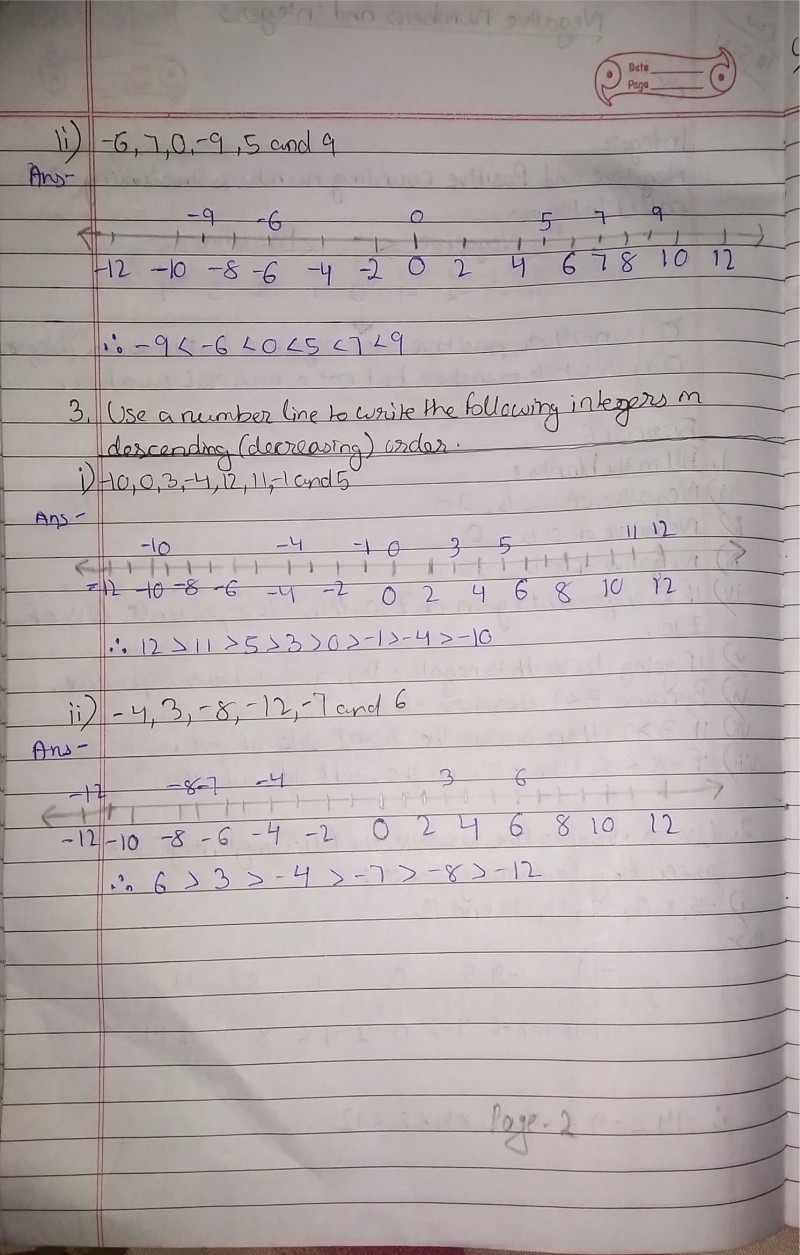 Negative Numbers and integers
Date
Page
ii) -6, 7, 0, -9, 5 and 9
Ans-
-9 -6 0 5 7 9
-12 -10 -8 -6 -4 -2 0 2 4 6 7 8 10 12
∴ -9 < -6 < 0 < 5 < 7 < 9
3. Use a number line to write the following integers in
descending (decreasing) order.
i) -10, 0, 3, -4, 12, 11, -1 and 5
Ans-
-10 -4 -1 0 3 5 11 12
-12 -10 -8 -6 -4 -2 0 2 4 6 8 10 12
∴ 12 > 11 > 5 > 3 > 0 > -1 > -4 > -10
ii) -4, 3, -8, -12, -7 and 6
Ans-
-12 -8 -7 -4 3 6
-12 -10 -8 -6 -4 -2 0 2 4 6 8 10 12
∴ 6 > 3 > -4 > -7 > -8 > -12
Page-2